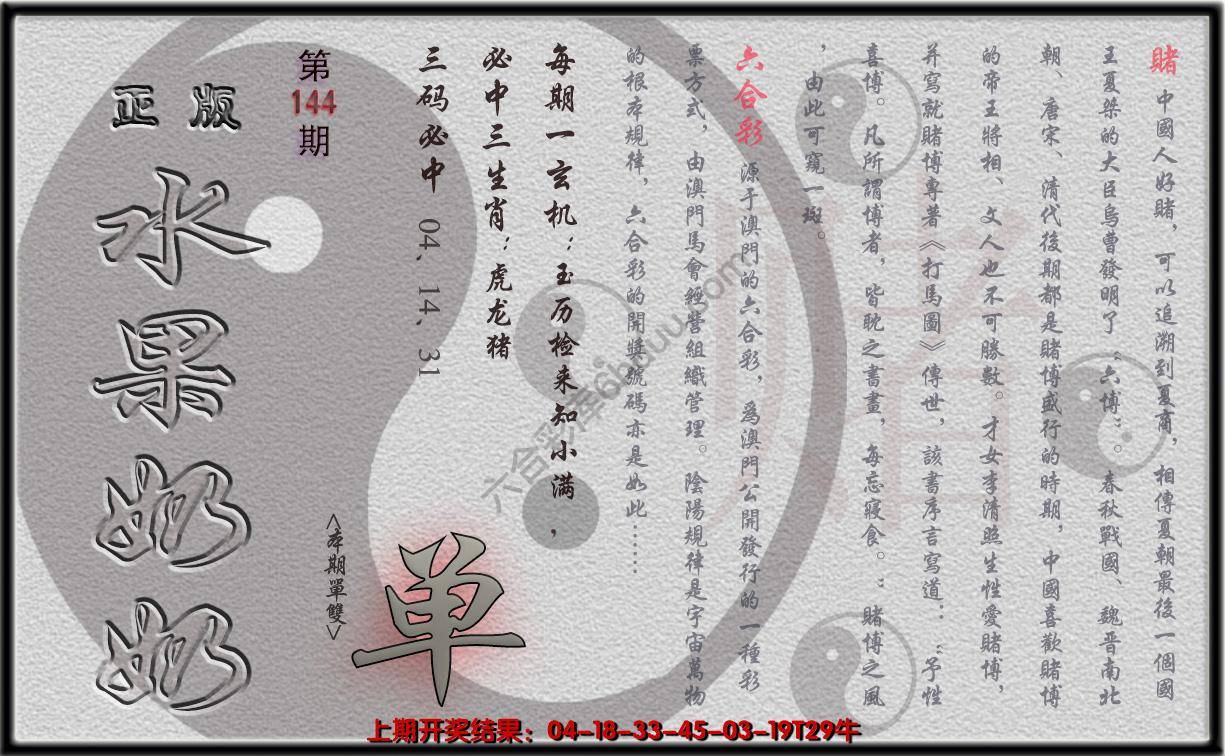 賭 中國人好賭，可以追溯到夏商，相傳夏朝最後一個國
王夏桀的大臣烏曹發明了“六博”。春秋戰國、魏晋南北
朝、唐宋、清代後期都是賭博盛行的時期，中國喜歡賭博
的帝王將相、文人也不可勝數。才女李清照生性愛賭博，
并寫就賭博專著《打馬圖》傳世，該書序言寫道：“予性
喜博。凡所謂博者，皆耽之書畫，每忘寢食。”賭博之風
，由此可窺一斑。
六合彩 源于澳門的六合彩，爲澳門公開發行的一種彩
票方式，由澳門馬會經營組織管理。陰陽規律是宇宙萬物
的根本規律，六合彩的開獎號碼亦是如此……
每期一玄机：玉历检来知小满，
必中三生肖：虎龙猪
三码必中 04. 14. 31
第
144
期
正版
水果奶奶
<本期單雙>
单
六合彩库6huuu.com
上期开奖结果：04-18-33-45-03-19T29牛